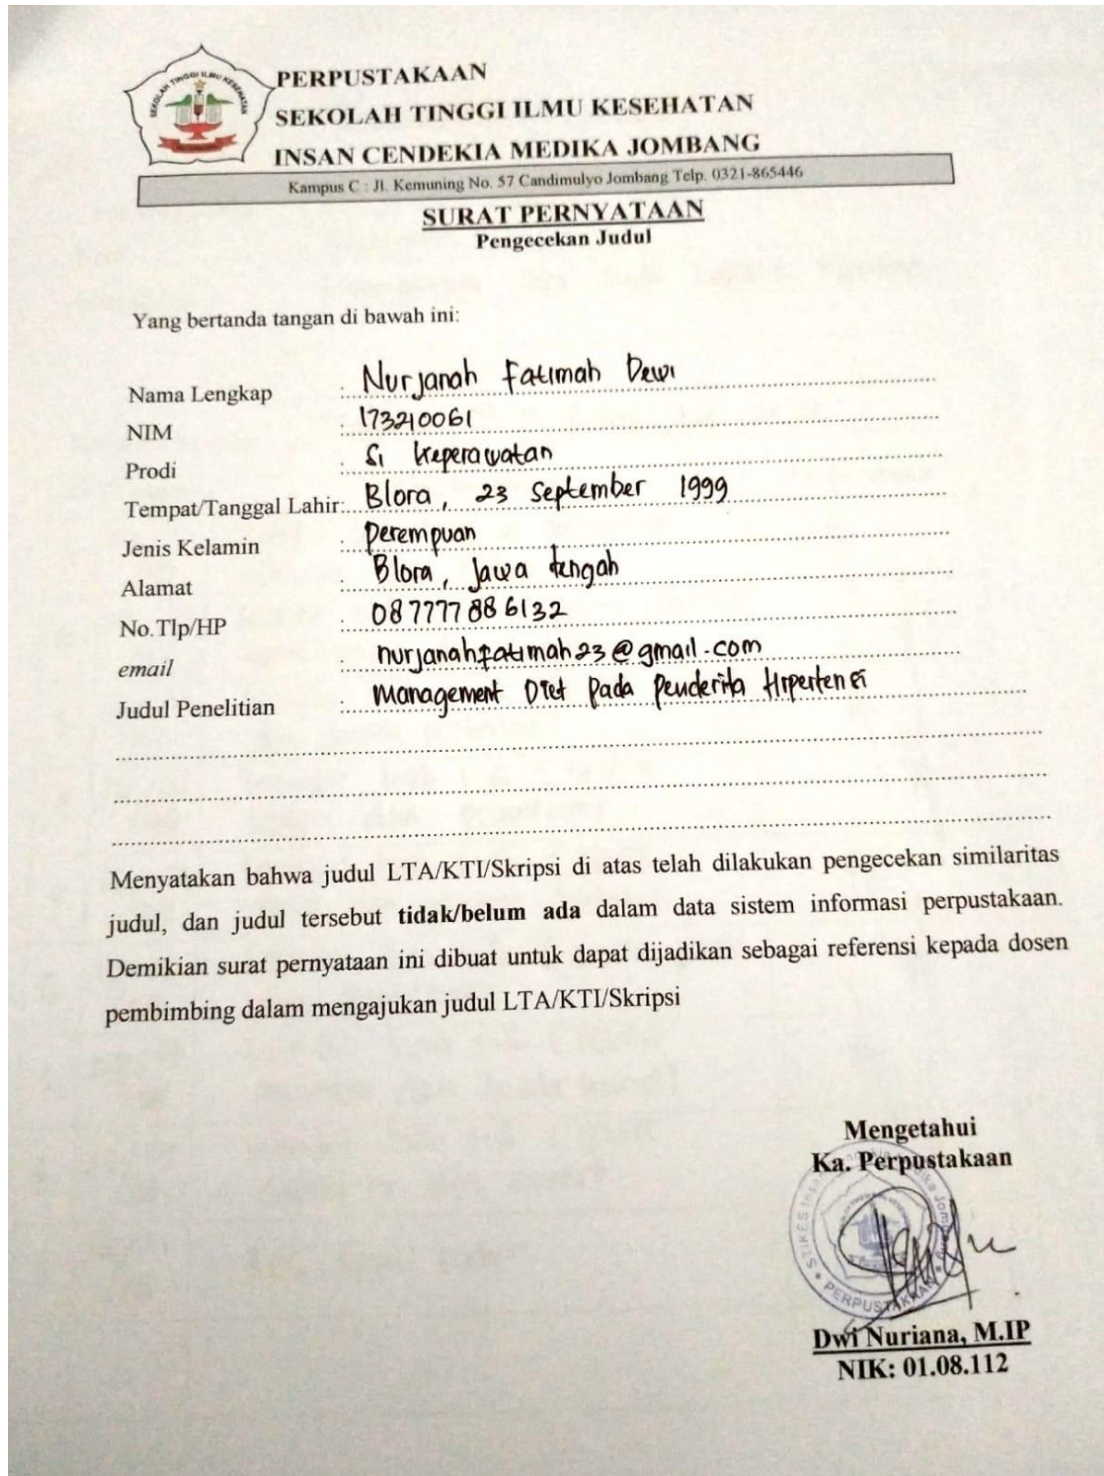 SEKOLAH TINGGI ILMU KESEHATAN
PERPUSTAKAAN
SEKOLAH TINGGI ILMU KESEHATAN
INSAN CENDEKIA MEDIKA JOMBANG
Kampus C : Jl. Kemuning No. 57 Candimulyo Jombang Telp. 0321-865446
SURAT PERNYATAAN
Pengecekan Judul
Yang bertanda tangan di bawah ini:
Nama Lengkap : Nurjanah Fatimah Dewi
NIM : 173210061
Prodi : S1 Keperawatan
Tempat/Tanggal Lahir: Blora, 23 September 1999
Jenis Kelamin : Perempuan
Alamat : Blora, Jawa tengah
No.Tlp/HP : 087777886132
email : nurjanahfatimah23@gmail.com
Judul Penelitian : Management Diet Pada Penderita Hipertensi
Menyatakan bahwa judul LTA/KTI/Skripsi di atas telah dilakukan pengecekan similaritas
judul, dan judul tersebut tidak/belum ada dalam data sistem informasi perpustakaan.
Demikian surat pernyataan ini dibuat untuk dapat dijadikan sebagai referensi kepada dosen
pembimbing dalam mengajukan judul LTA/KTI/Skripsi
Mengetahui
Ka. Perpustakaan
STIKES Insan Cendekia Medika Jombang
PERPUSTAKAAN
Dwi Nuriana, M.IP
NIK: 01.08.112